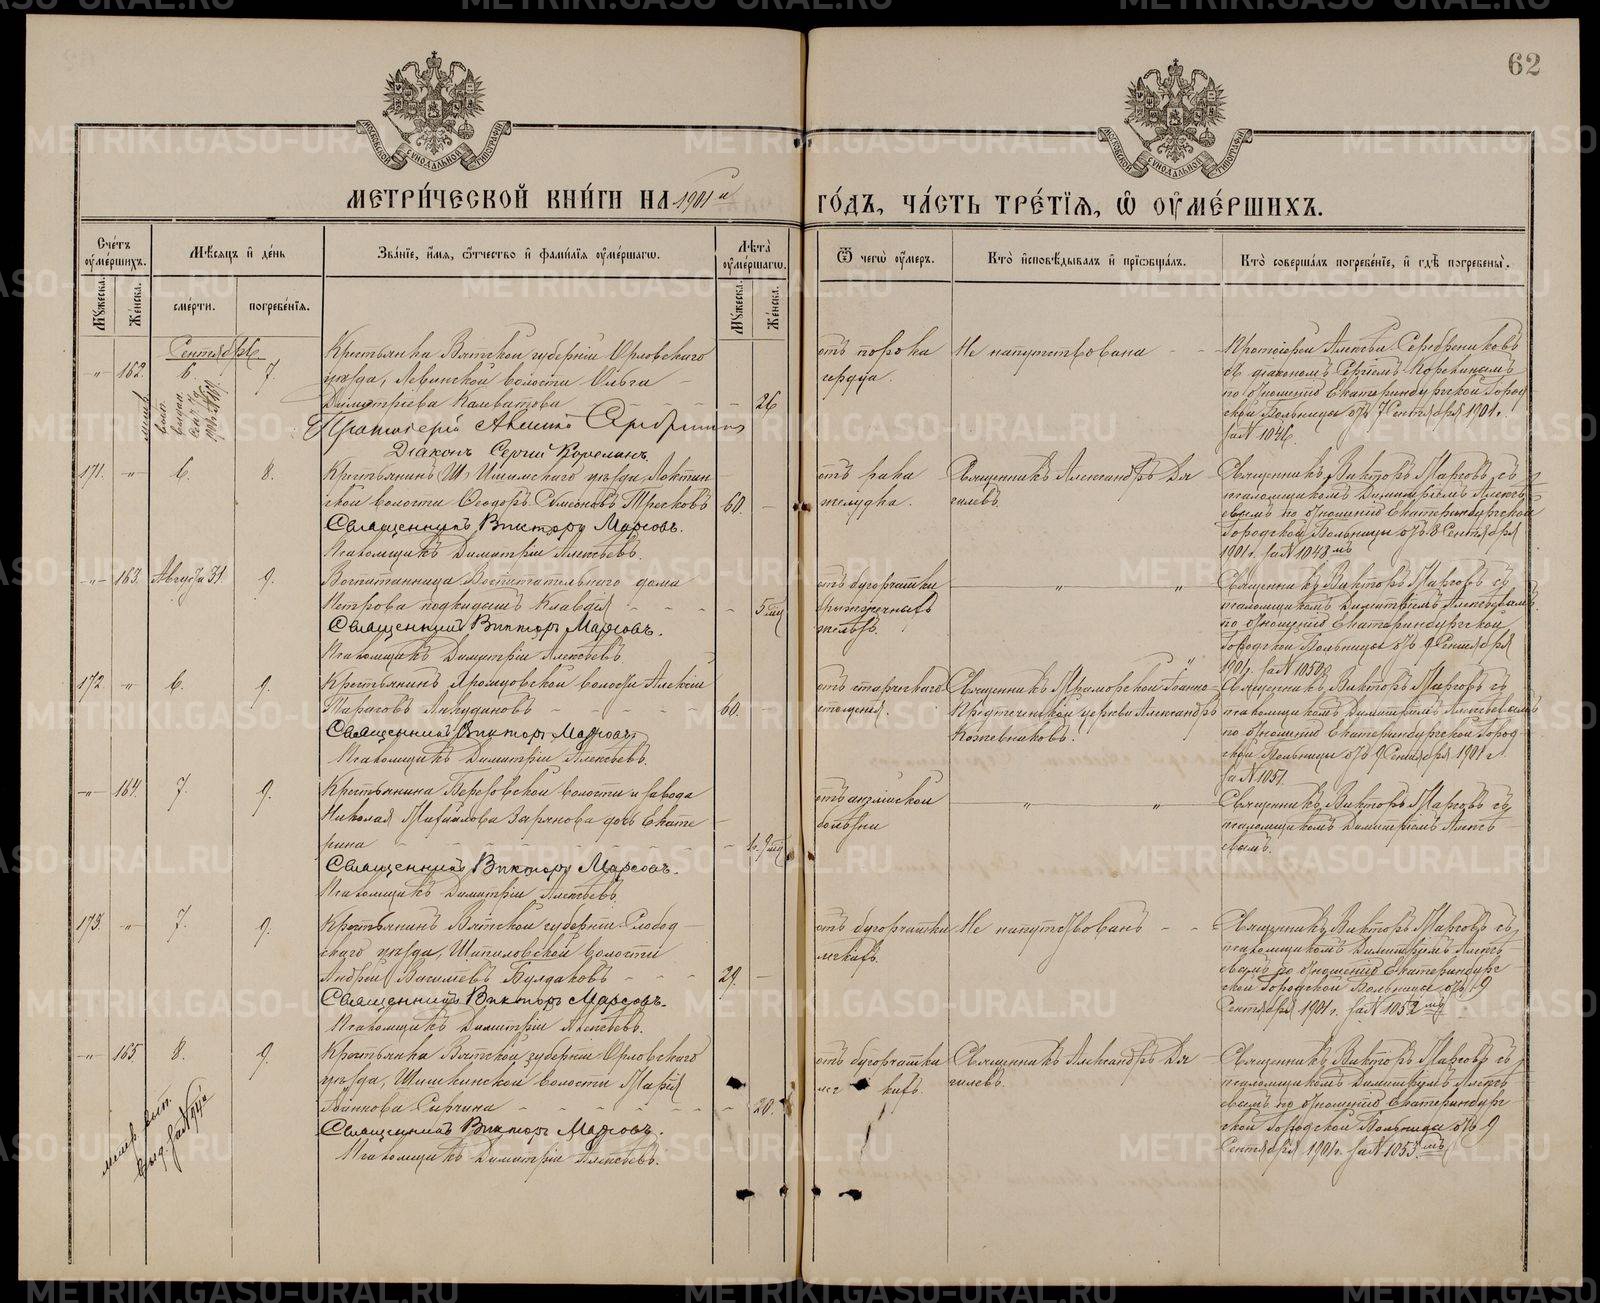 62
МОСКОВСКОЙ СУНОДАЛЬНОЙ ТИПОГРАФІИ
МОСКОВСКОЙ СУНОДАЛЬНОЙ ТИПОГРАФІИ
МЕТРИ́ЧЕСКОЙ КНИ́ГИ НА 1901 й
ГО́ДЪ, ЧА́СТЬ ТРЕ́ТІѦ, Ѡ҆ ОУ҆МЕ́РШИХЪ.
Сче́тъ оу҆ме́ршихъ.
Мѣ́сѧцъ и҆ де́нь
Зва́нїе, и҆́мѧ, ѻ҆́тчество и҆ фами́лїѧ оу҆ме́ршагѡ.
Лѣ́та оу҆ме́ршагѡ.
Ѿ чегѡ̀ оу҆́меръ.
Кто̀ и҆сповѣ́дывалъ и҆ прїѡбща́лъ.
Кто̀ соверша́лъ погребе́нїе, и҆ гдѣ̀ погребены̀.
Мꙋ́жеска.
Же́нска.
сме́рти.
погребе́нїѧ.
Мꙋ́жеска.
Же́нска.
Сентябрь
-„- 162. 6. 7.
Крестьянка Вятской губерніи Орловскаго
уѣзда, Левинской волости Ольга
Димитріева Калватова 26
Протоіерей Алексій Серебренниковъ
Діаконъ Сергій Корелинъ.
отъ порока
сердца.
Не напутствована
Протоіерей Алексѣй Серебрениковъ
съ діакономъ Сергіемъ Корелинымъ
по отношенію Екатеринбургской Город
ской Больницы отъ 7 Сентября 1901 г.
за N 1046.
171. -„- 6. 8.
Крестьянинъ Ишимскаго уѣзда Локтин
ской волости Ѳеодоръ Симеоновъ Тресковъ 60.
Священникъ Викторъ Марсовъ.
Псаломщикъ Димитрій Алексѣевъ.
отъ рака
желудка.
Священникъ Александръ Дя
гилевъ.
Священникъ Викторъ Марсовъ съ
псаломщикомъ Димитріемъ Алексѣ
евымъ по отношенію Екатеринбургской
Городской Больницы отъ 8 Сентября
1901 г. за N 1048 мъ
-„- 163. Августа 31. 9.
Воспитанница Воспитательнаго дома
Петрова подкидышъ Клавдія 5 мц
Священникъ Викторъ Марсовъ.
Псаломщикъ Димитрій Алексѣевъ.
отъ бугорчатки
желѣзъ.
„ „
Священникъ Викторъ Марсовъ съ
псаломщикомъ Димитріемъ Алексѣевымъ
по отношенію Екатеринбургской
Городской Больницы отъ 9 Сентября
1901 г. за N 1050
172. -„- 6. 9.
Крестьянинъ волости Алексій
Тарасовъ Анкудиновъ 60.
Священникъ Викторъ Марсовъ.
Псаломщикъ Димитрій Алексѣевъ.
отъ старческаго
истощенія.
Священникъ Мраморской Іоанно
Предтеченской церкви Александръ
Кожевниковъ.
Священникъ Викторъ Марсовъ съ
псаломщикомъ Димитріемъ Алексѣевымъ
по отношенію Екатеринбургской Город
ской Больницы отъ 9 Сентября 1901 г.
за N 1051.
-„- 164. 7. 9.
Крестьянина Березовской волости и завода
Николая Михайлова Зарянова дочь Екате
рина 9 мц
Священникъ Викторъ Марсовъ.
Псаломщикъ Димитрій Алексѣевъ.
отъ англійской
болѣзни
„ „
Священникъ Викторъ Марсовъ съ
псаломщикомъ Димитріемъ Алексѣ
евымъ.
173. -„- 7. 9.
Крестьянинъ Вятской губерніи Слобод
скаго уѣзда, Шепиловской волости
Андрей Васильевъ Булдаковъ 29.
Священникъ Викторъ Марсовъ.
Псаломщикъ Димитрій Алексѣевъ.
отъ бугорчатки
легкихъ.
Не напутствованъ
Священникъ Викторъ Марсовъ съ
псаломщикомъ Димитріемъ Алексѣ
евымъ по отношенію Екатеринбург
ской Городской Больницы отъ 9
Сентября 1901 г. за N 1052 мъ
-„- 165. 8. 9.
Крестьянка Вятской губерніи Орловскаго
уѣзда, Шишкинской волости Марія
Сичина 20.
Священникъ Викторъ Марсовъ.
Псаломщикъ Димитрій Алексѣевъ.
отъ бугорчатки
легкихъ.
Священникъ Александръ Дя
гилевъ.
Священникъ Викторъ Марсовъ съ
псаломщикомъ Димитріемъ Алексѣ
евымъ по отношенію Екатеринбург
ской Городской Больницы отъ 9
Сентября 1901 г. за N 1053 мъ
METRIKI.GASO-URAL.RU